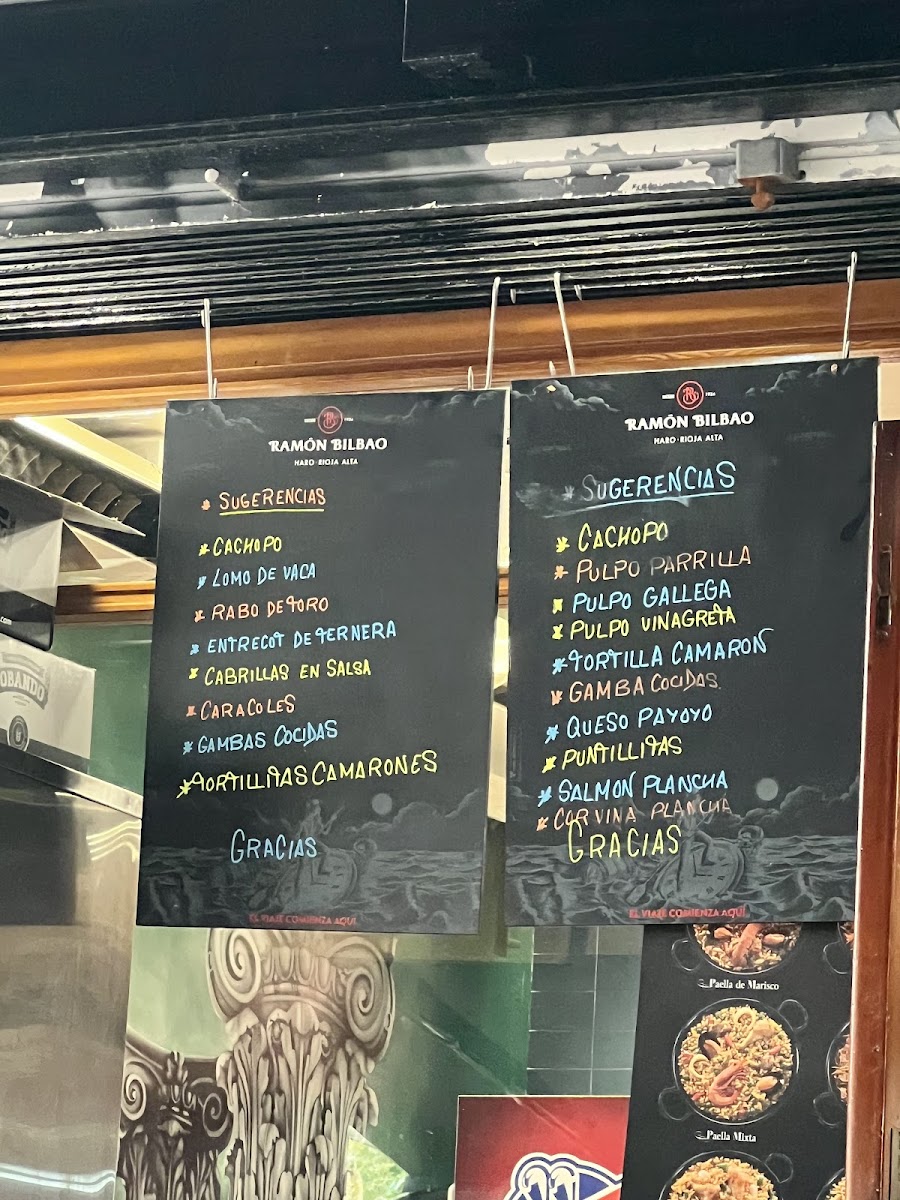 RAMÓN BILBAO
HARO·RIOJA ALTA
* SUGERENCIAS
* CACHOPO
* LOMO DE VACA
* RABO DE TORO
* ENTRECOT DE TERNERA
* CABRILLAS EN SALSA
* CARACOLES
* GAMBAS COCIDAS
* TORTILLITAS CAMARONES
GRACIAS
EL VIAJE COMIENZA AQUÍ
RAMÓN BILBAO
HARO·RIOJA ALTA
* SUGERENCIAS
* CACHOPO
* PULPO PARRILLA
* PULPO GALLEGA
* PULPO VINAGRETA
* TORTILLA CAMARON
* GAMBA COCIDAS
* QUESO PAYOYO
* PUNTILLITAS
* SALMON PLANCHA
* CORVINA PLANCHA
GRACIAS
EL VIAJE COMIENZA AQUÍ
OBANDO
Paella de Marisco
Paella Mixta